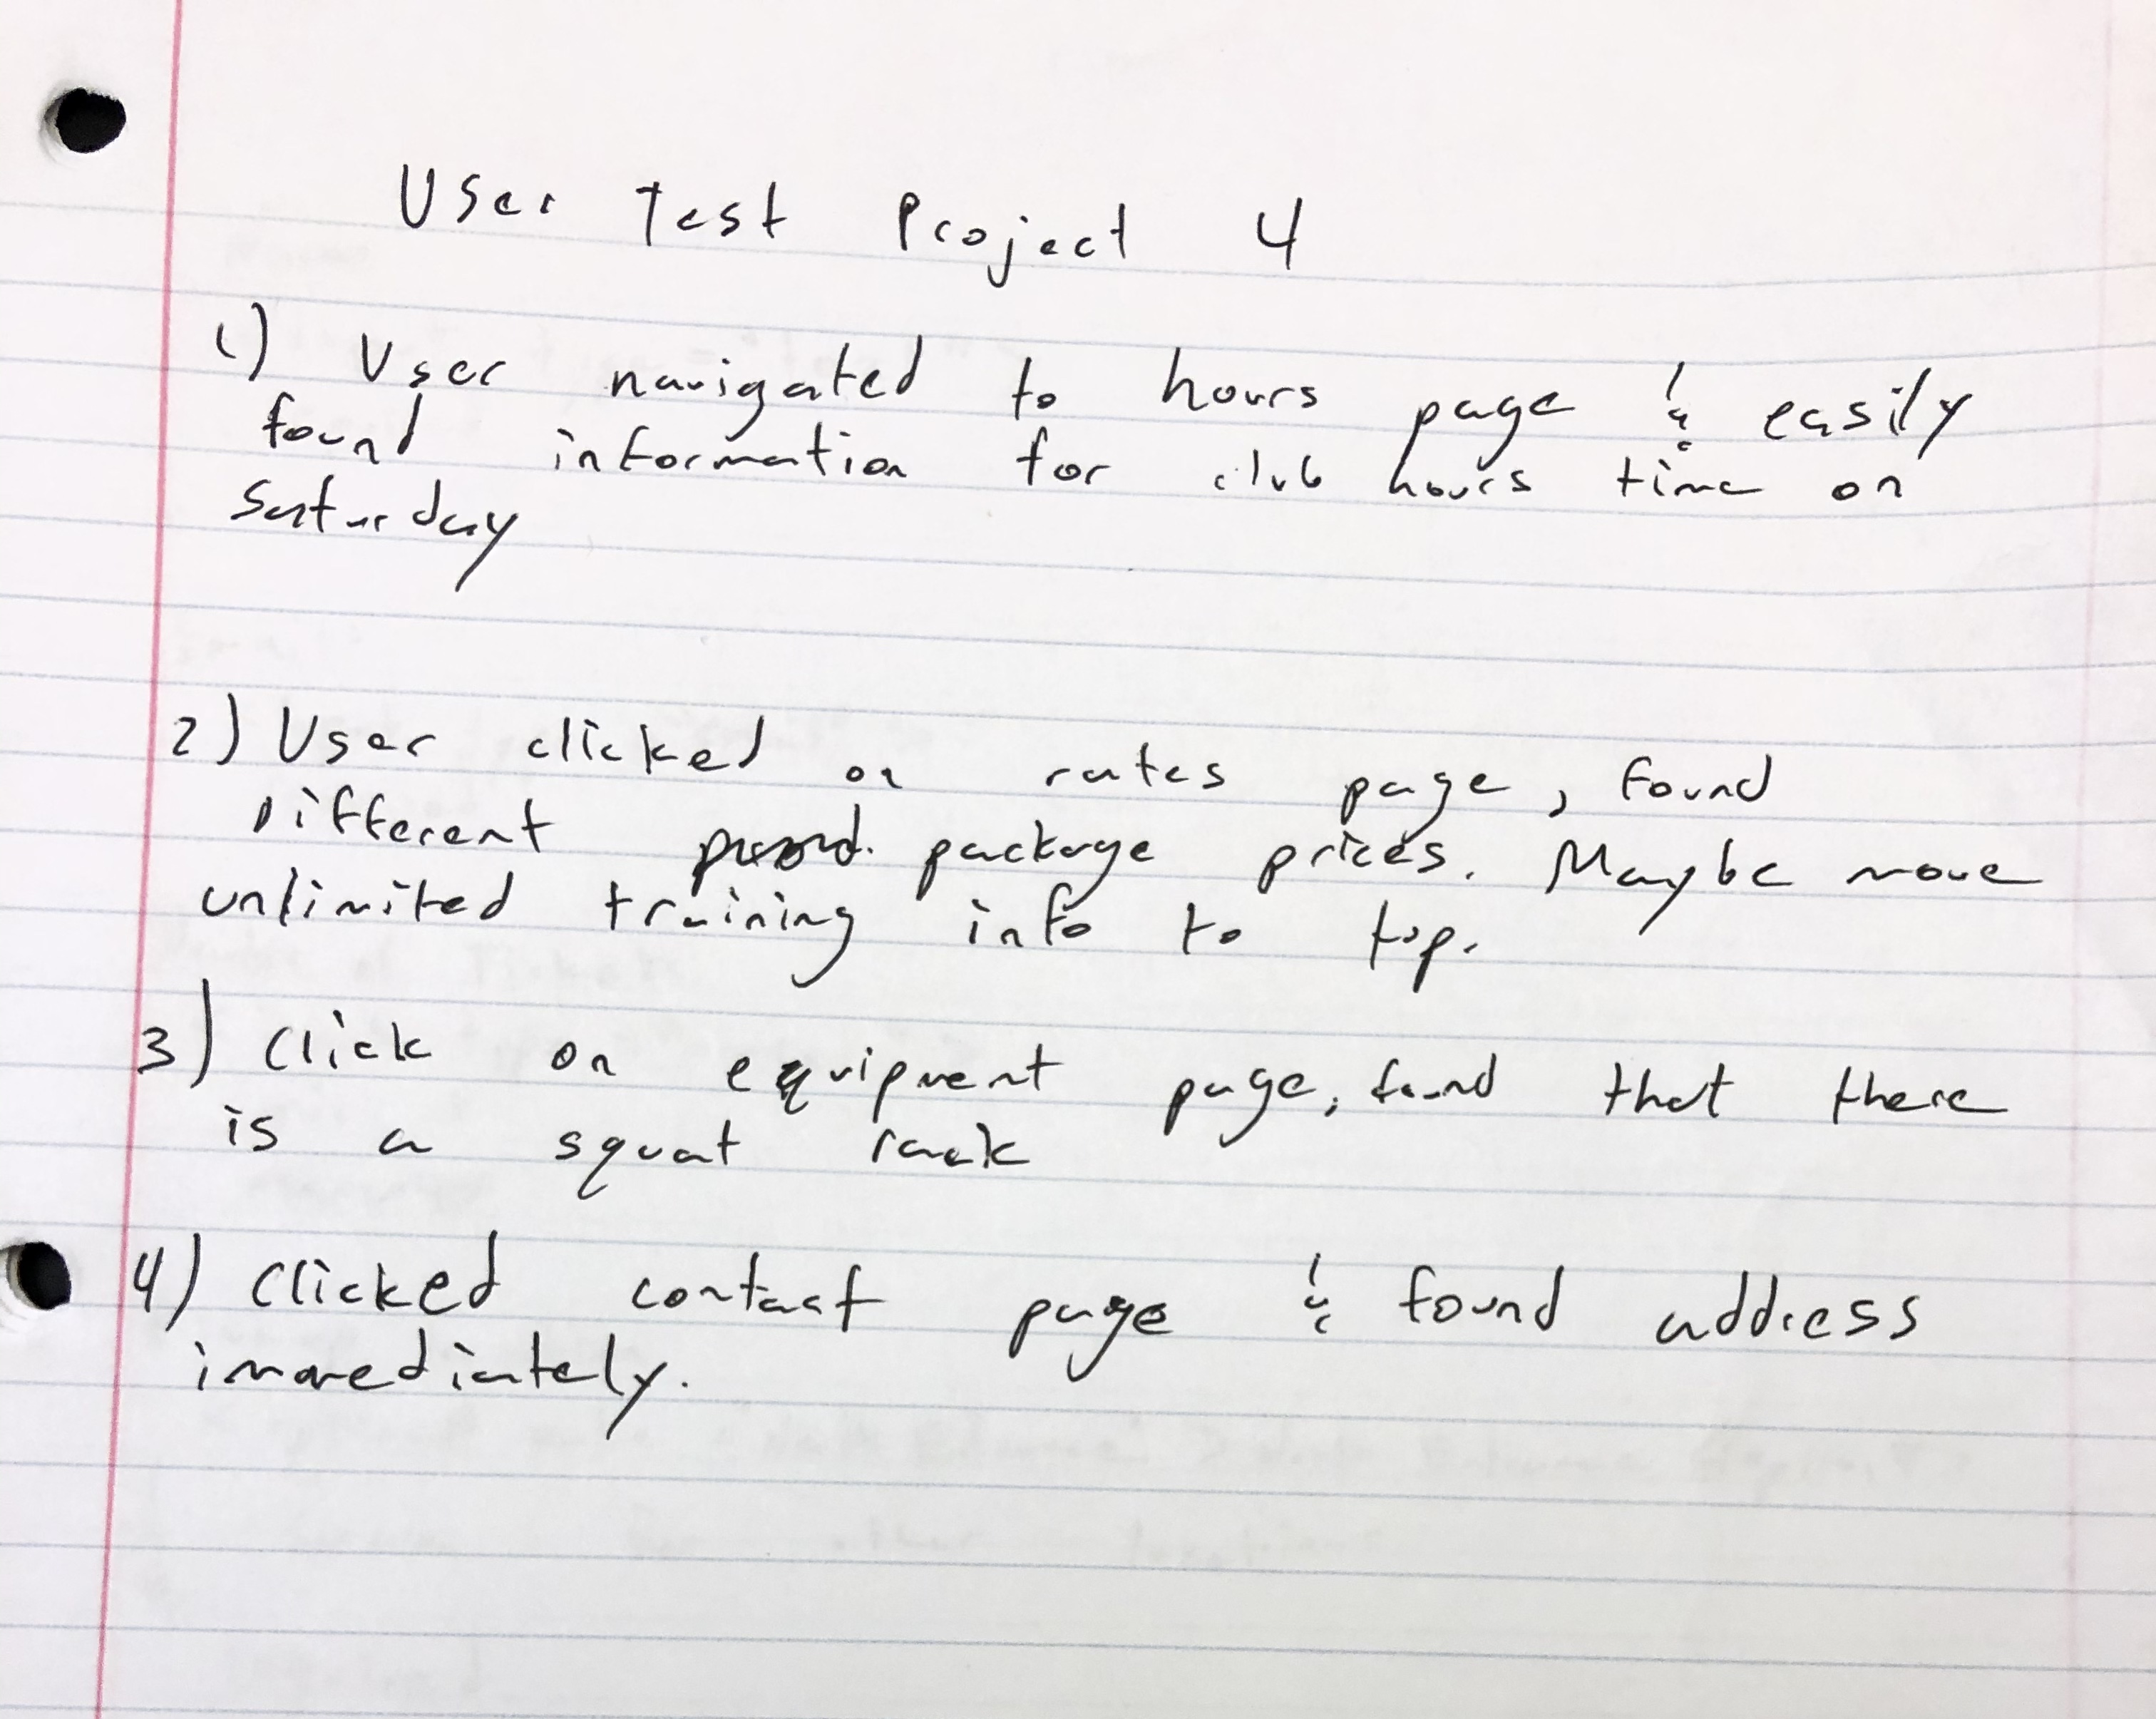 User Test Project 4
1) User navigated to hours page & easily
found information for club hours time on
Saturday
2) User clicked on rates page, found
different package prices. Maybe move
unlimited training info to top.
3) Click on equipment page, found that there
is a squat rack
4) Clicked contact page & found address
immediately.